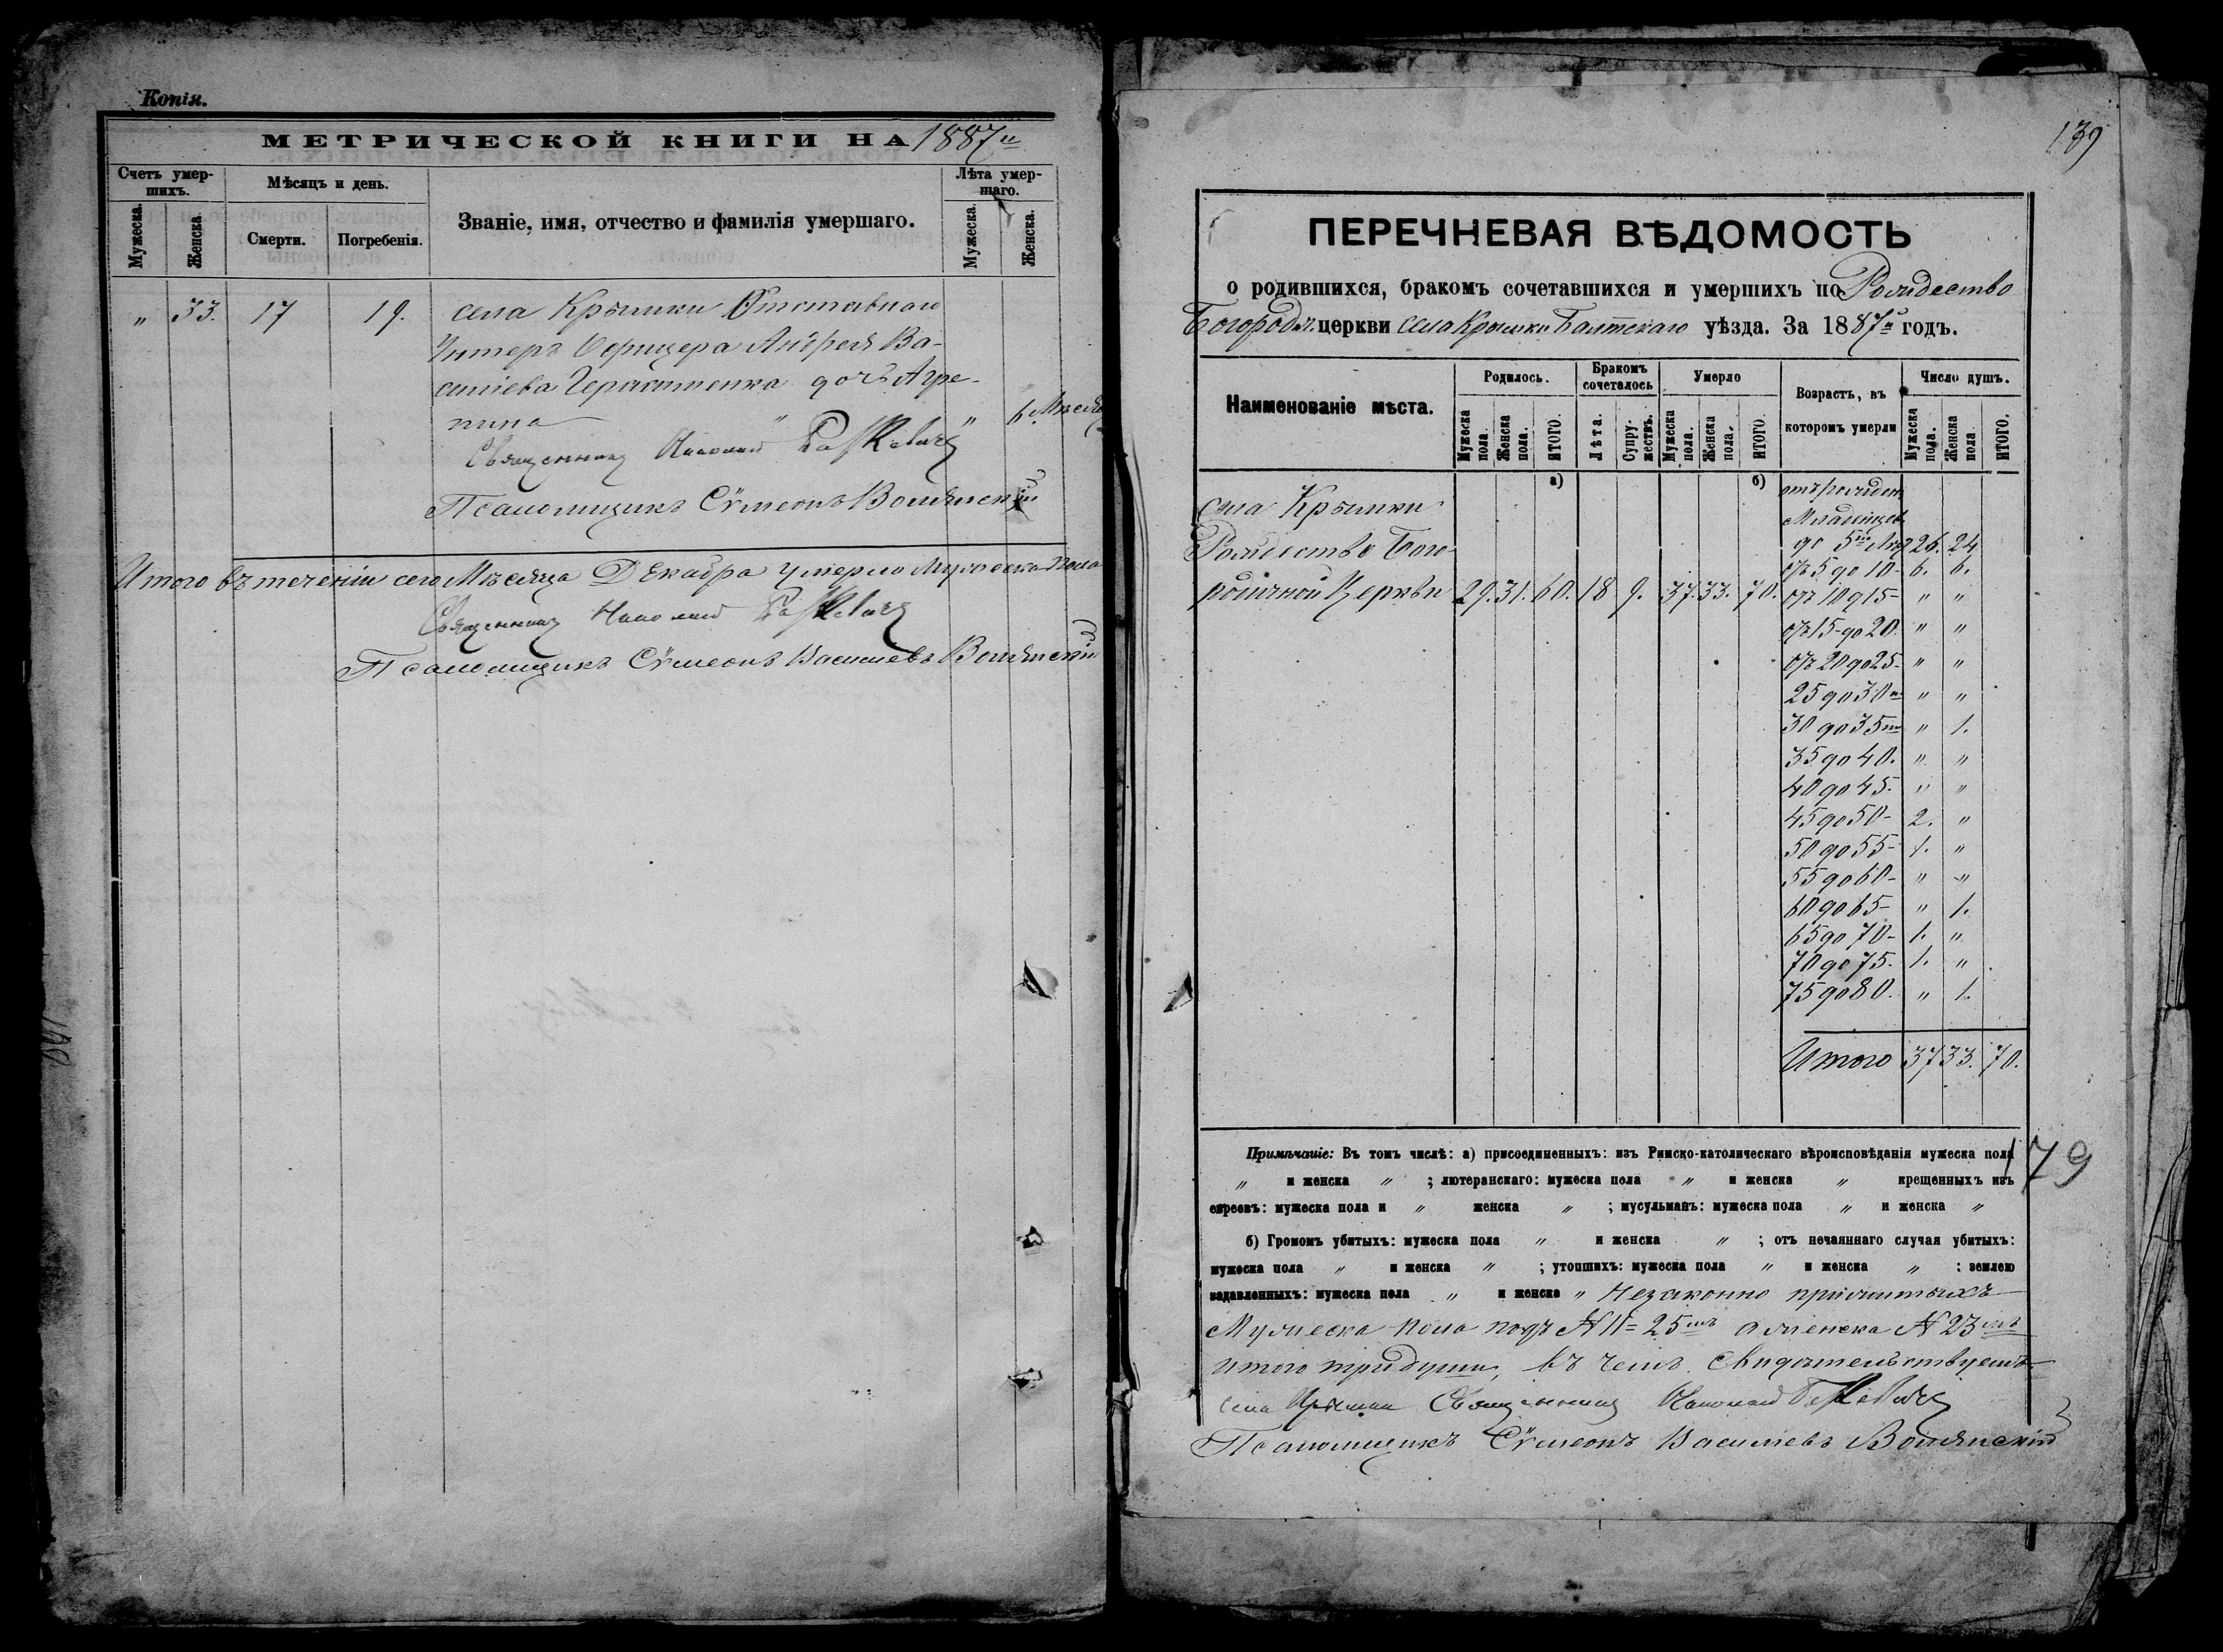 Копія.
МЕТРИЧЕСКОЙ КНИГИ НА 1887 г
Счетъ умершихъ.
Мѣсяцъ и день.
Званіе, имя, отчество и фамилія умершаго.
Лѣта умершаго.
Мужеска.
Женска.
Смерти.
Погребенія.
Мужеска.
Женска.
" 33. 17 19. села Крымки Отставнаго
Унтеръ Офицера Андрея Ва-
силіева Герасименка дочь Агре-
пина " " 6. Мѣсяц
Священникъ Николай
Псаломщикъ Сѵмеонъ Волянскій
Итого въ теченіи сего Мѣсяца Декабря умерло Мужеска Пола
Священникъ Николай
Псаломщикъ Сѵмеонъ Василіевъ Волянскій
139
ПЕРЕЧНЕВАЯ ВѢДОМОСТЬ
о родившихся, бракомъ сочетавшихся и умершихъ по Рождество
Богород. церкви села Крымки Балтскаго уѣзда. За 1887 годъ.
Наименованіе мѣста.
Родилось.
Бракомъ сочеталось
Умерло
Возрастъ, въ которомъ умерли
Число душъ.
Мужеска пола.
Женска пола.
ИТОГО
Лѣта.
Супружествъ.
Мужеска пола.
Женска пола.
ИТОГО
Мужеска пола.
Женска пола.
ИТОГО.
а) б)
села Крымки
Рождество Бого-
родичной Церкви 29. 31. 60. 18 9. 37. 33. 70.
отъ рожден
Младенцев
до 5 лѣт 26. 24
отъ 5 до 10- 6. 6.
отъ 10 д 15- " "
отъ 15 до 20. " "
отъ 20 до 25- " "
25 до 30 " "
30 до 35 " 1.
35 до 40. " "
40 до 45. " "
45 до 50- 2. "
50 до 55- 1. "
55 до 60- " "
60 до 65- " 1.
65 до 70- 1. "
70 до 75. 1. "
75 до 80. " 1.
Итого 37 33. 70.
Примѣчаніе: Въ томъ числѣ: а) присоединенныхъ: изъ Римско-католическаго вѣроисповѣданія мужеска пола
179
" и женска " ; лютеранскаго: мужеска пола " и женска " крещенныхъ изъ
евреевъ: мужеска пола и " женска " ; мусульманъ: мужеска пола " и женска "
б) Громомъ убитыхъ: мужеска пола " и женска " ; отъ нечаяннаго случая убитыхъ:
мужеска пола " и женска " ; утопшихъ: мужеска пола " и женска " : землею
задавленныхъ: мужеска пола " и женска " Незаконно прижитыхъ
Мужеска пола подъ № 11= 25 а женска № 23
итого три души, въ чемъ свидѣтельствуемъ
села Крымки Священникъ Николай
Псаломщикъ Сѵмеонъ Василіевъ Волянскій